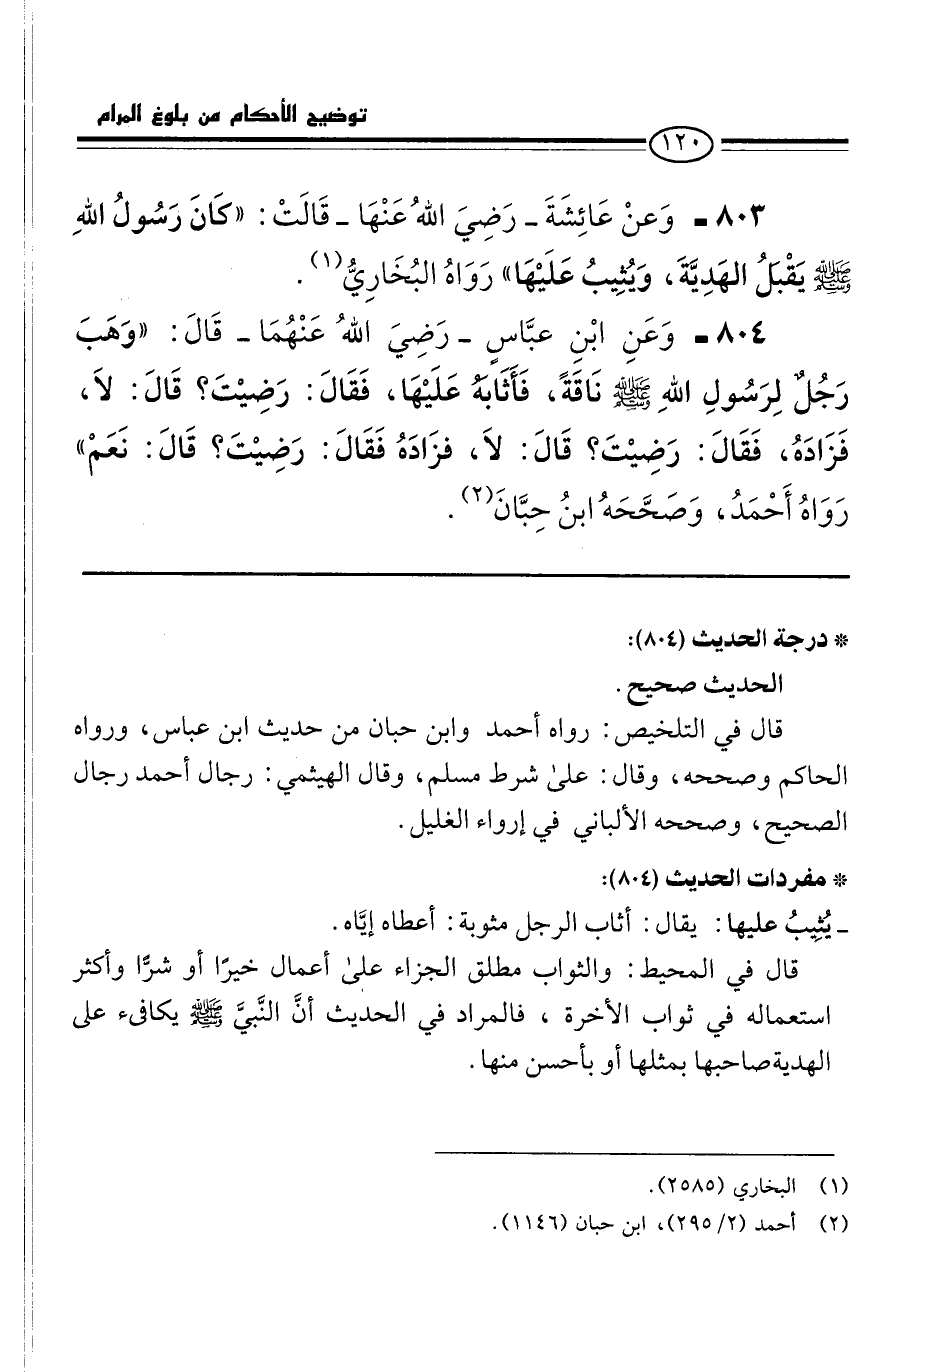 توضيح الأحكام من بلوغ المرام
١٢٠
٨٠٣ - وَعَنْ عَائِشَةَ - رَضِيَ اللهُ عَنْهَا - قَالَتْ: «كَانَ رَسُولُ اللهِ
ﷺ يَقْبَلُ الهَدِيَّةَ، وَيُثِيبُ عَلَيْهَا» رَوَاهُ البُخَارِيُّ(١).
٨٠٤ - وَعَنِ ابْنِ عبَّاسٍ - رَضِيَ اللهُ عَنْهُمَا - قَالَ: «وَهَبَ
رَجُلٌ لِرَسُولِ اللهِ ﷺ نَاقَةً، فَأَثَابَهُ عَلَيْهَا، فَقَالَ: رَضِيْتَ؟ قَالَ: لاَ،
فَزَادَهُ، فَقَالَ: رَضِيْتَ؟ قَالَ: لاَ، فزَادَهُ فَقَالَ: رَضِيْتَ؟ قَالَ: نَعَمْ»
رَوَاهُ أَحْمَدُ، وَصَحَّحَهُ ابنُ حِبَّانَ(٢).
* درجة الحديث (٨٠٤):
الحديث صحيح.
قال في التلخيص: رواه أحمد وابن حبان من حديث ابن عباس، ورواه
الحاكم وصححه، وقال: علىٰ شرط مسلم، وقال الهيثمي: رجال أحمد رجال
الصحيح، وصححه الألباني في إرواء الغليل.
* مفردات الحديث (٨٠٤):
- يُثِيبُ عليها: يقال: أثاب الرجل مثوبة: أعطاه إيَّاه.
قال في المحيط: والثواب مطلق الجزاء علىٰ أعمال خيرًا أو شرًّا وأكثر
استعماله في ثواب الأخرة ، فالمراد في الحديث أنَّ النَّبيَّ ﷺ يكافىء على
الهدية صاحبها بمثلها أو بأحسن منها.
(١) البخاري (٢٥٨٥).
(٢) أحمد (٢/ ٢٩٥)، ابن حبان (١١٤٦).